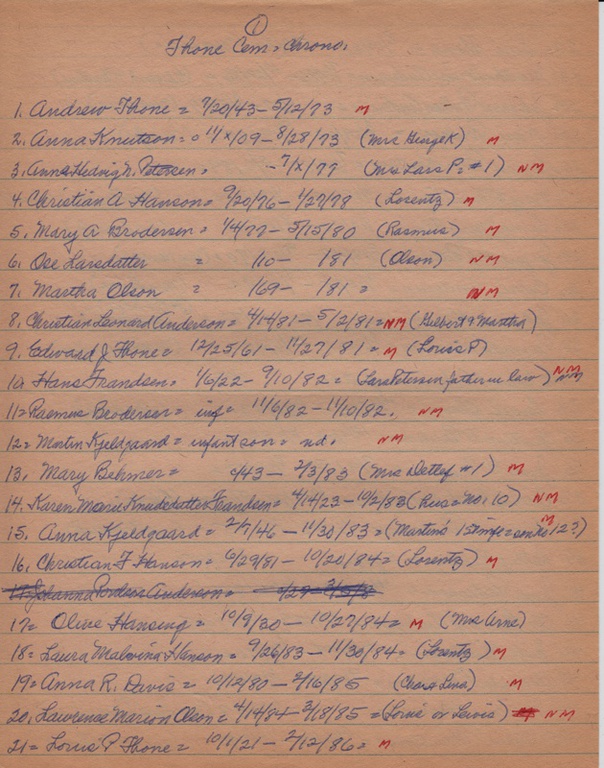 1
Thone Cem = Chrono.
1. Andrew Thone = 7/20/43 - 5/12/73 M
2. Anna Knutson = 11/x/09 - 8/28/73 (Mrs George K) M
3. Anna Hedvig N. Petersen = - 7/x/77 (Mrs Lars P. #1) NM
4. Christian A Hanson = 9/20/76 - 1/27/78 (Lorentz) M
5. Mary A Brodersen = 1/4/77 - 5/15/80 (Rasmus) M
6. Ose Larsdatter = /10 - /81 (Olson) NM
7. Martha Olson = /69 - /81 = NM
8. Christian Leonard Anderson = 4/14/81 - 5/2/81 = NM (Gilbert & Martha)
9. Edward J Thone = 12/25/61 - 11/27/81 = M (Louis P)
10 Hans Frandsen = 1/6/22 - 9/10/82 = (Lars Petersen father in law) NM NM
11 = Rasmus Brodersen = inf = 11/6/82 - 11/10/82. NM
12 = Martin Kjeldgaard = infant son = nd. NM
13. Mary Behmer = c/43 - 2/3/83 (Mrs Detlef #1) M
14. Karen Marie Knudsdatter Frandsen = 4/14/23 - 10/2/83 (Rus = No. 10) NM
15. Anna Kjeldgaard = 2/7/46 - 11/30/83 = (Martin's 1st wife = son No 12?) M
16. Christian F Hanson = 6/29/81 - 10/20/84 = (Lorentz) M
17 Johanna Anderson =
17 = Olive Hansing = 10/9/30 - 10/27/84 = M (Mrs Arne)
18 = Laura Malvina Hanson = 9/26/83 - 11/30/84 = (Lorentz) M
19 = Anna R. Davis = 10/12/80 - 2/16/85 (Chas & Lena) M
20. Lawrence Marion Olson = 4/14/84 - 3/18/85 = (Lorns or Lewis) NM
21 = Lorus P Thone = 10/1/21 - 2/12/86 = M